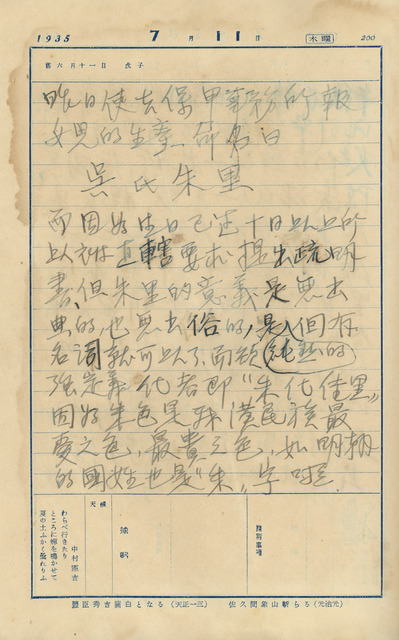 1935 7月11日 木曜 200
舊六月十一日 子虎
昨日使去保甲事務所報
女児的生產、命名曰
吳氏朱里
而因好生日已过十日以上所
以被直轄要求提出疏明
書、但朱里的意義是無出
典的,也無出俗的,是个但有
名詞就可以了,而欲 純 的
強定義代者即“朱代佳里”
因好朱色是我漢民族最
愛之色,最貴之色,如明朝
的國姓也是“朱”字啦.
天候
球訳
中村憲吉
わらべ行きたり
ところに蟬を鳴かせて
夏の土ふかく
豐臣秀吉關白となる(天正一三)
佐久間象山斬らる(元治元)